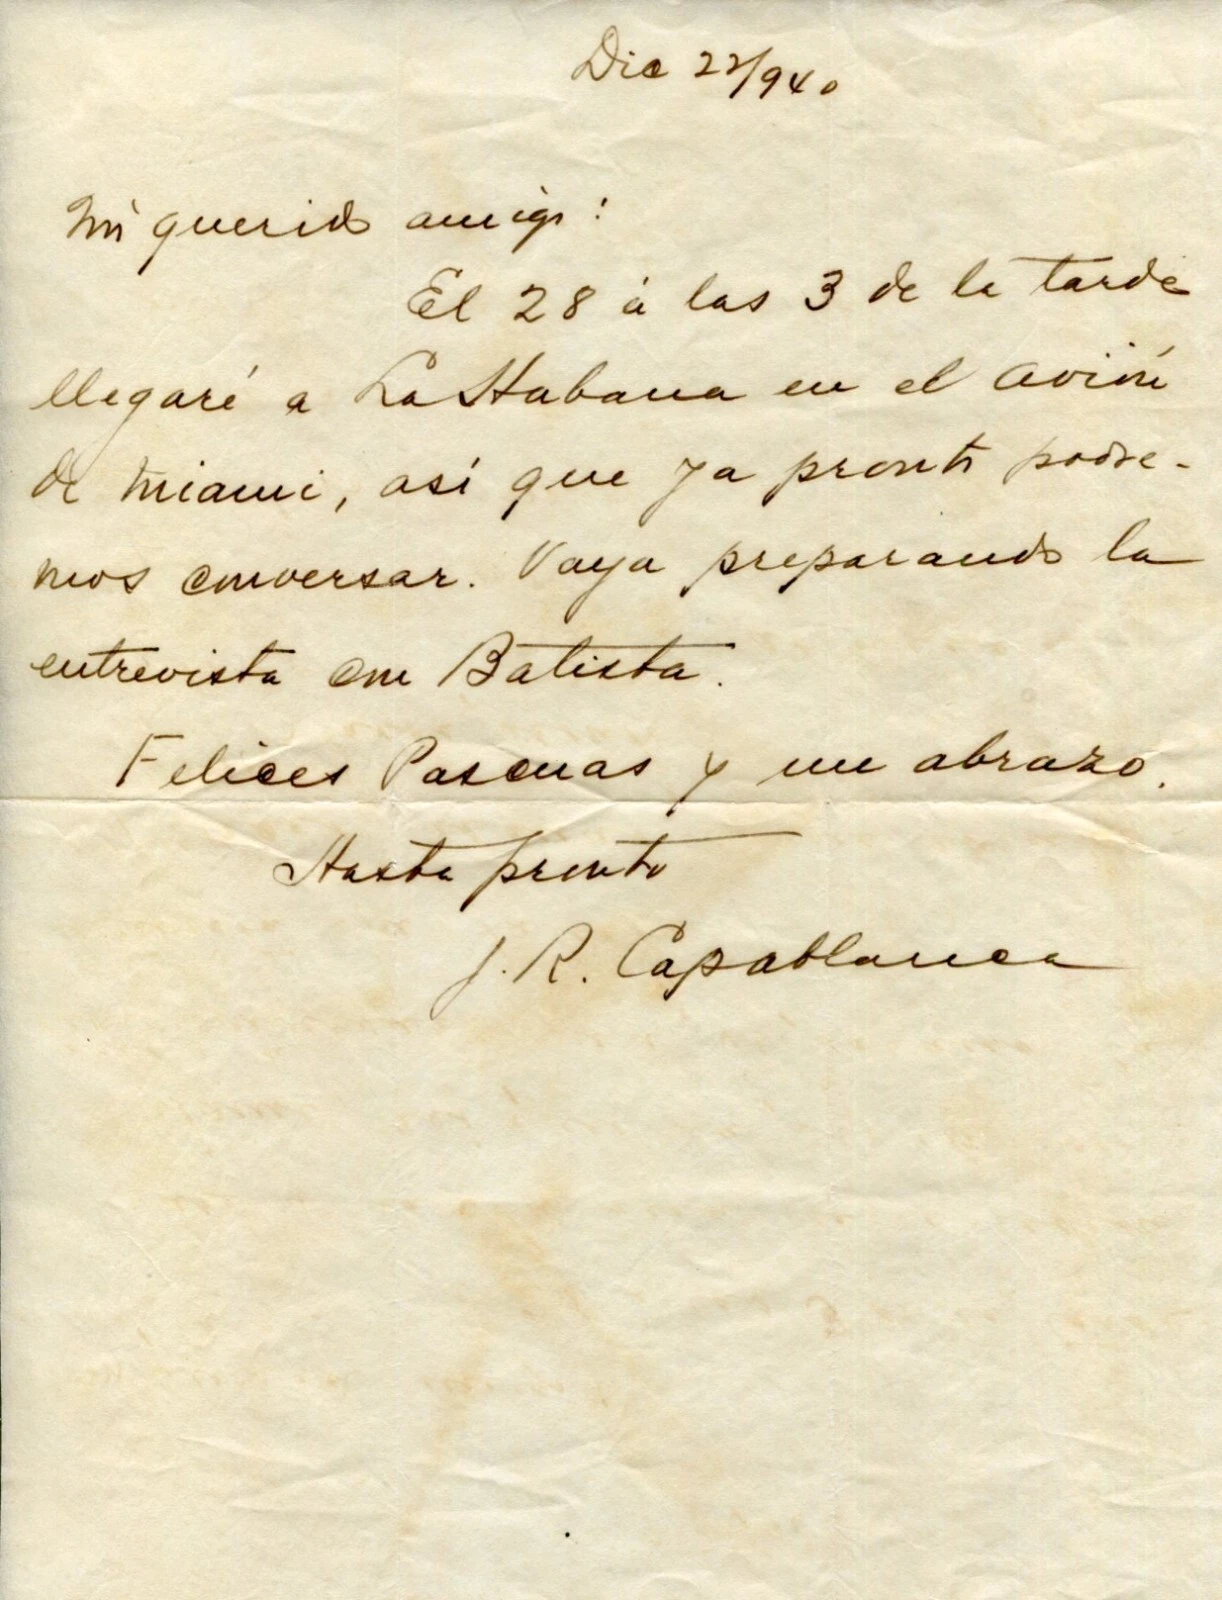 Dic 22/940
Mi querido amigo:
El 28 á las 3 de la tarde
llegaré a La Habana en el avión
de Miami, así que ya pronto podre-
mos conversar. Vaya preparando la
entrevista con Batista.
Felices Pascuas y un abrazo.
Hasta pronto
J. R. Capablanca